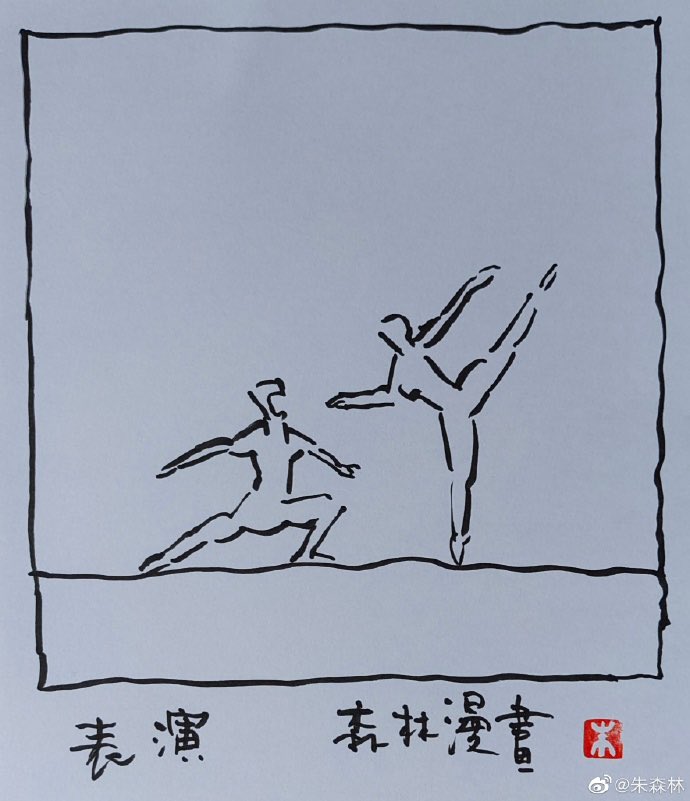 表演 森林漫畫 朱
@朱森林